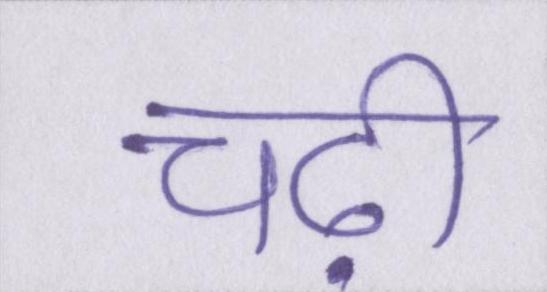 चढ़ी